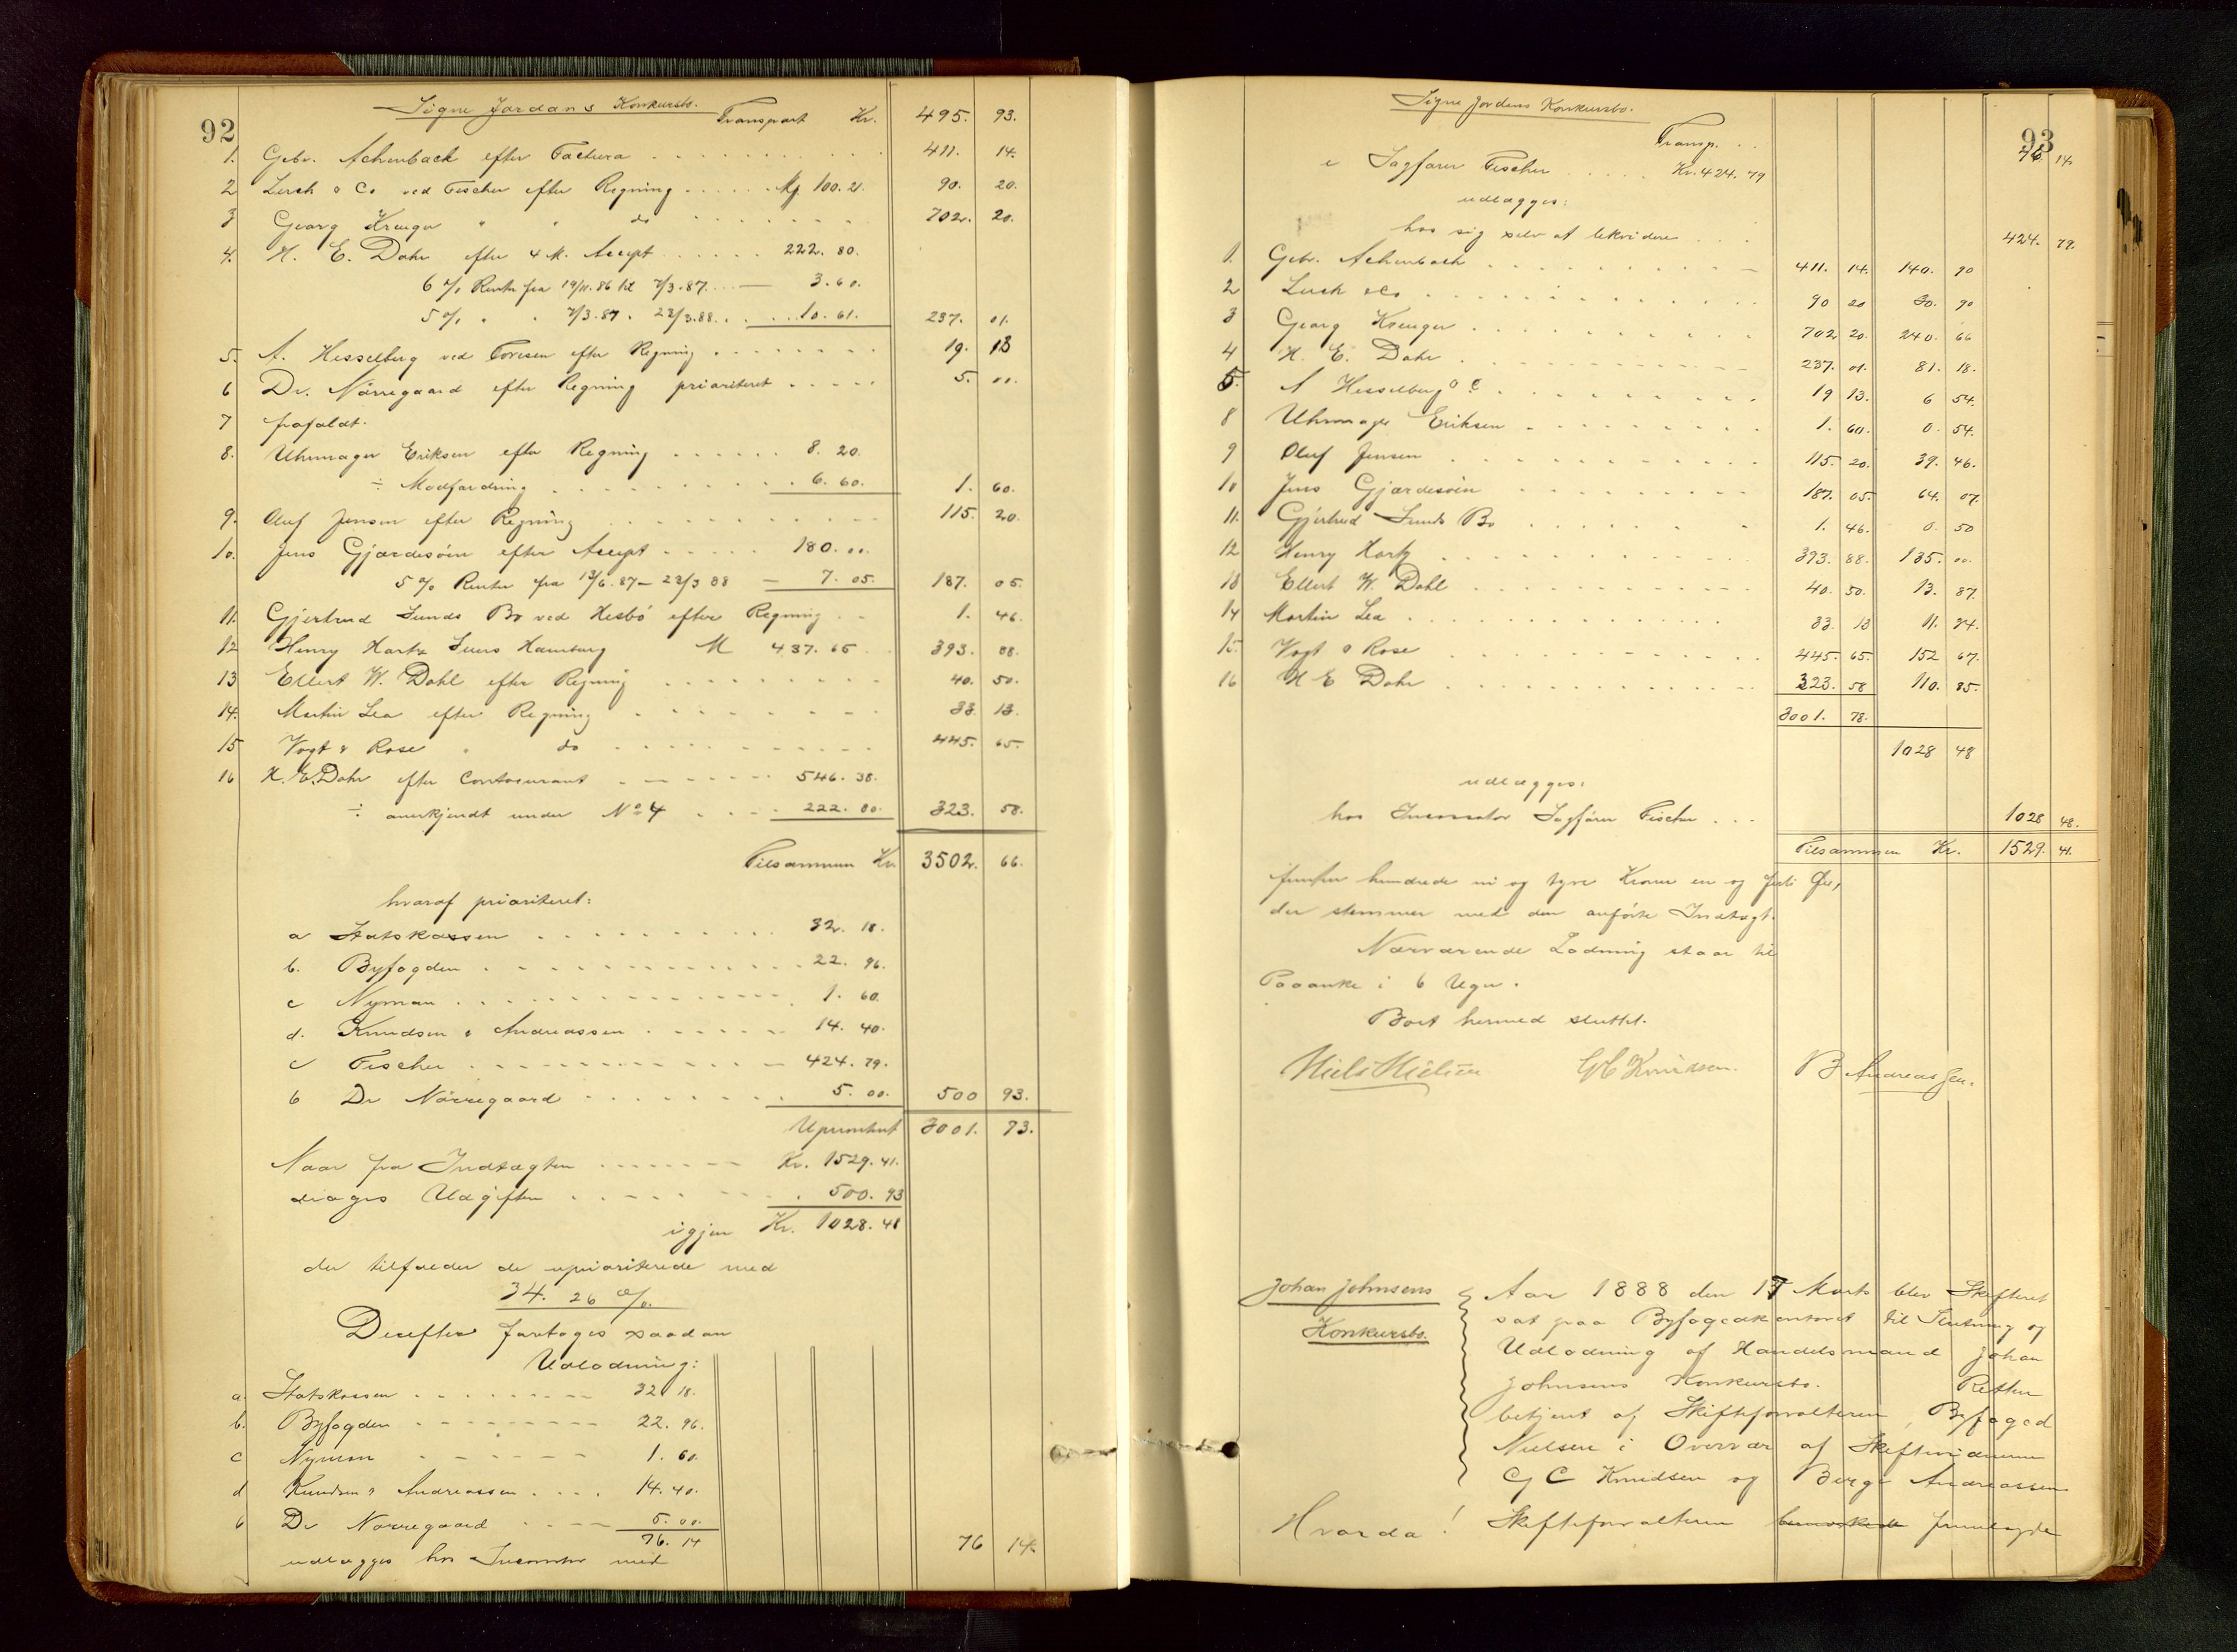 92
Signe Jordans Konkursbo.
Transport Kr. 495. 93.
1. Gebr. Achenbach efter Factura 411. 14.
2 Lersch & Co ved Fischer efter Regning Mk 100. 21. 90. 20.
3 Georg Krenger " " do 702. 20.
4. H. E. Dahr efter 4 M. Accept 222. 80.
6 % Renter fra 19/11.86 til 7/3.87. 3. 60.
5 % " " 7/3.87. 23/3.88. 10. 61. 237. 01.
5. A. Hesselberg ved Torrisen efter Regning 19. 13
6 Dr. Nörregaard efter Regning prioriteret 5. 00.
7 frafaldt.
8. Uhrmager Eriksen efter Regning 8. 20.
÷ Modfordring 6. 60. 1. 60.
9. Oluf Jensen efter Regning 115. 20.
10. Jens Gjærdesöen efter Accept 180. 00.
5 % Renter fra 13/6.87 – 23/3 88 – 7. 05. 187. 05.
11. Gjertrud Lunds Bo ved Hesbö efter Regning 1. 46.
12 Henry Hartz Hamburg M 437. 65 393. 88.
13 Ellert W. Dahl efter Regning 40. 50.
14. Martin Lea efter Regning 33. 13.
15 Vogt & Rose " do 445. 65.
16 H. E. Dahr efter Contocurant 546. 38.
÷ anerkjendt under No 4 222. 80. 323. 58.
Tilsammen Kr 3502. 66.
hvoraf prioriteret:
a Statskassen 32. 18.
b. Byfogden 22. 96.
c Nyman 1. 60.
d. Knudsen & Andreassen 14. 40.
e Fischer 424. 79.
6 Dr Nörregaard 5. 00. 500 93.
Uprioritert 3001. 73.
Naar fra Indtægten Kr. 1529. 41.
drages Udgiften 500. 93
igjen Kr. 1028. 48
der tilfalder de uprioriterede med
34. 26 %.
Derefter foretoges saadan
Udlodning:
a. Statskassen 32 18.
b. Byfogden 22. 96.
c Nyman 1. 60.
d Knudsen & Andreassen 14. 40.
6 Dr Norregaard 5. 00.
76. 14
udlægges hos Incassator med 76 14.
93
Signe Jordens Konkursbo.
Transp. 76. 14.
e Sagfører Fischer Kr. 424. 79
udlægges:
hos sig selv at likvidere 424. 79.
1. Gebr. Achenbach 411. 14. 140. 90
2 Lersch & Co 90 20 30. 90
3 Georg Krenger 702 20. 240. 66
4 H. E. Dahr 237. 01. 81. 18.
5. A Hesselberg 19 13. 6 54.
8 Uhrmager Eriksen 1. 60. 0. 54.
9 Oluf Jensen 115. 20. 39. 46.
10 Jens Gjærdesöen 187. 05. 64. 07.
11. Gjertrud Lunds Bo 1. 46. 0. 50
12 Henry Hartz 393. 88. 135. 00.
13 Ellert W. Dahl 40. 50. 13. 87.
14 Martin Lea 33. 13 11. 34.
15. Vogt & Rose 445. 65. 152 67.
16 H E Dahr 323. 58 110. 85.
3001. 73.
1028 48
udlægges:
hos Incassator Sagfører Fischer 1028 48.
Tilsammen Kr. 1529. 41.
femten hundrede ni og tyve Kroner en og forti Øre,
der stemmer med den anförte Indtægt.
Nærværende Lodning staar til
Paaanke i 6 Uger.
Boet hermed sluttet.
Niels Nielsen G C Knudsen. B Andreassen.
Johan Johnsens
Konkursbo.
Aar 1888 den 17 Marts blev Skifteret
sat paa Byfogedkontoret til Slutning og
Udlodning af Handelsmand Johan
Johnsens Konkursbo. Retten
betjent af Skifteforvalteren, Byfoged
Nielsen i Overvær af Skiftevidnerne
G C Knudsen og Berge Andreassen
Hvorda! Skifteforvalteren bemærkede fremlagde